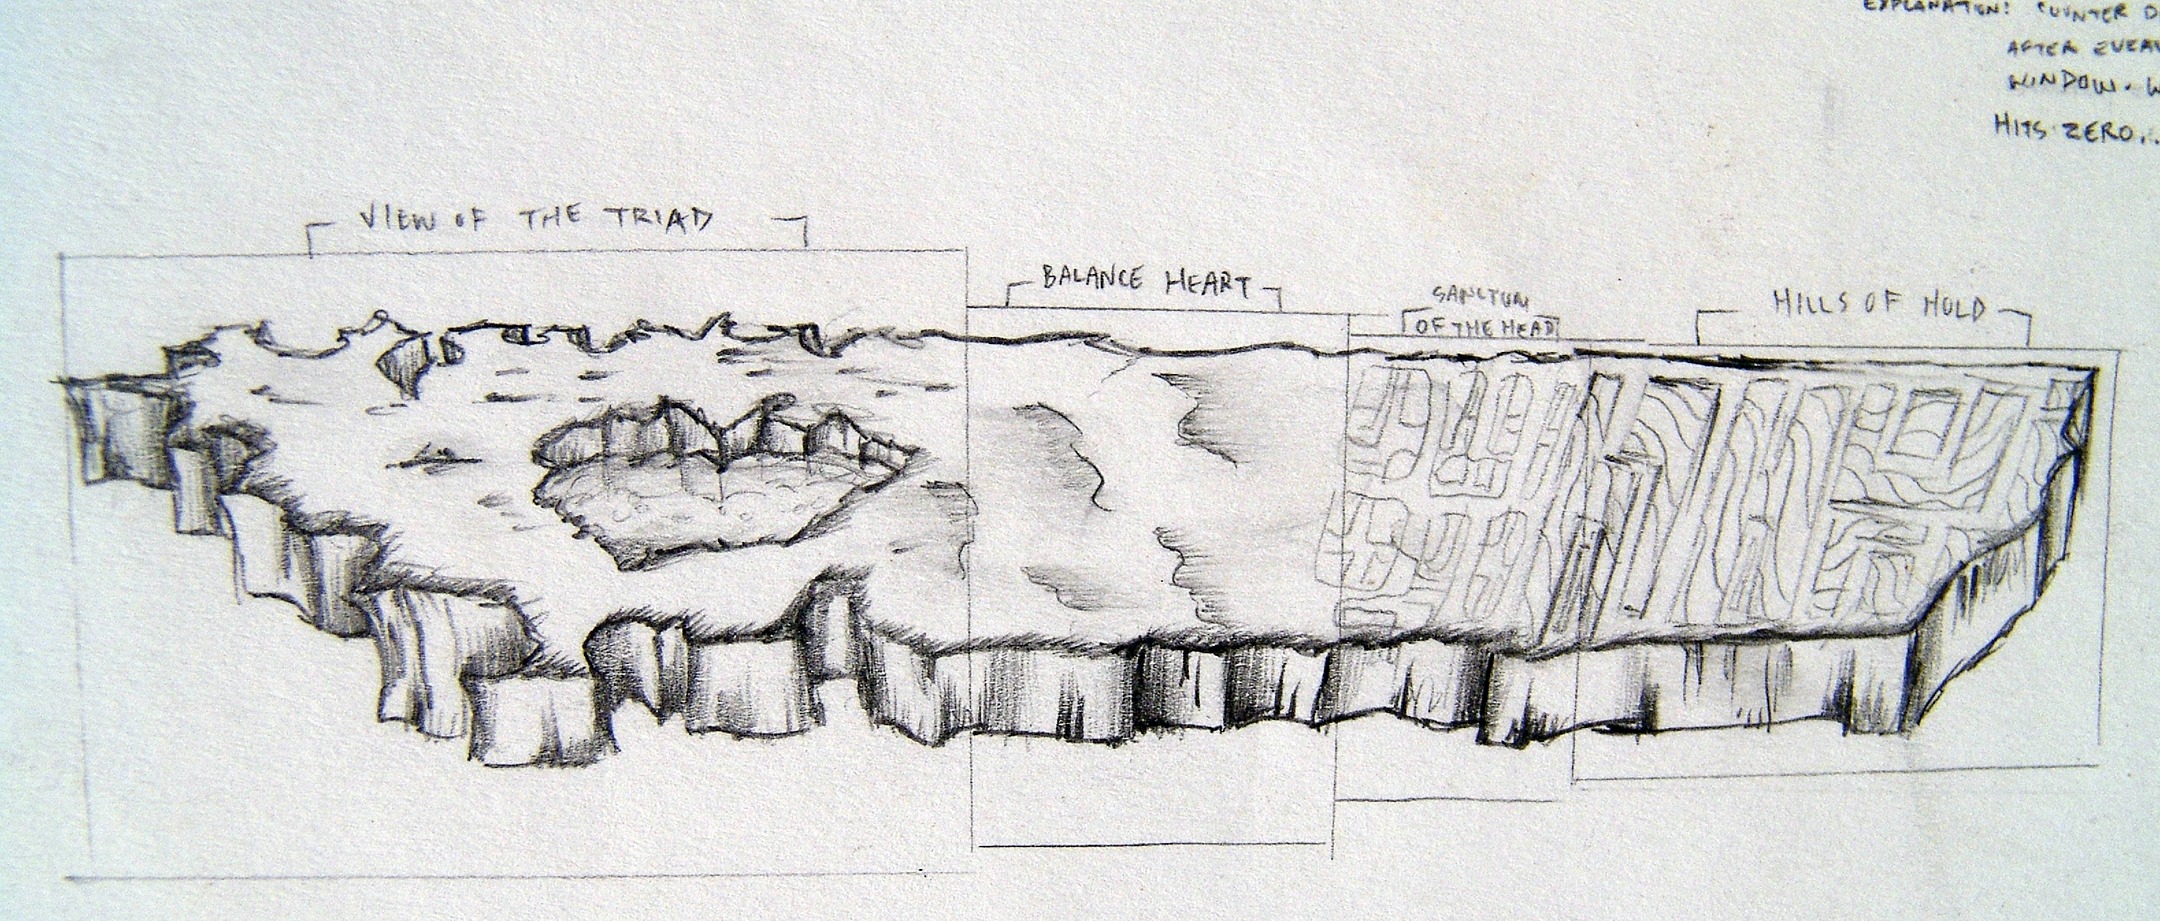 EXPLANATION: COUNTER D
AFTER EVERY
WINDOW. W
HITS ZERO...
VIEW OF THE TRIAD
BALANCE HEART
SANCTUM
OF THE HEAD
HILLS OF HOLD